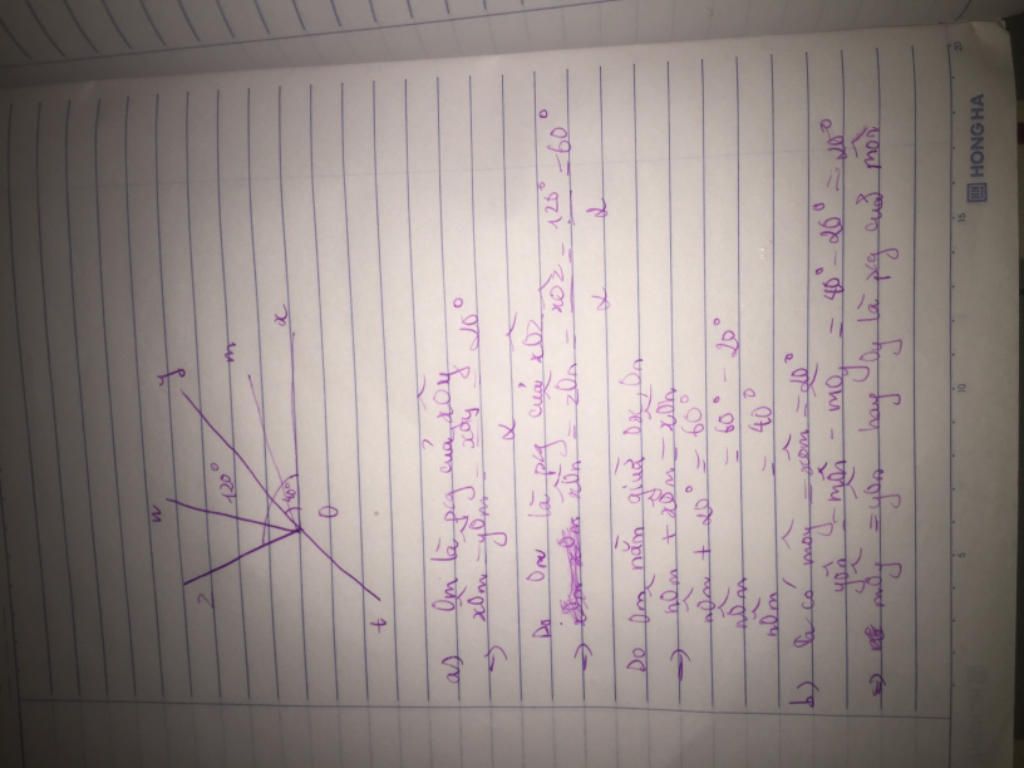 n
y
z
120°
m
40°
x
O
t
a) Om là pg của xOy
=) xOm = yOm = xOy = 20°
2
Do On là pg của xOz
=) xOn = zOn = xOz = 120° = 60°
2 2
Do Om nằm giữa Ox, On
=) nOm + xOm = xOn
nOm + 20° = 60°
nOm = 60° - 20°
nOm = 40°
b) Ta có mOy = xOm = 20°
yOn = mOn - mOy = 40° - 20° = 20°
=) mOy = yOn hay Oy là pg của mOn
HONG HA
5
10
15
20